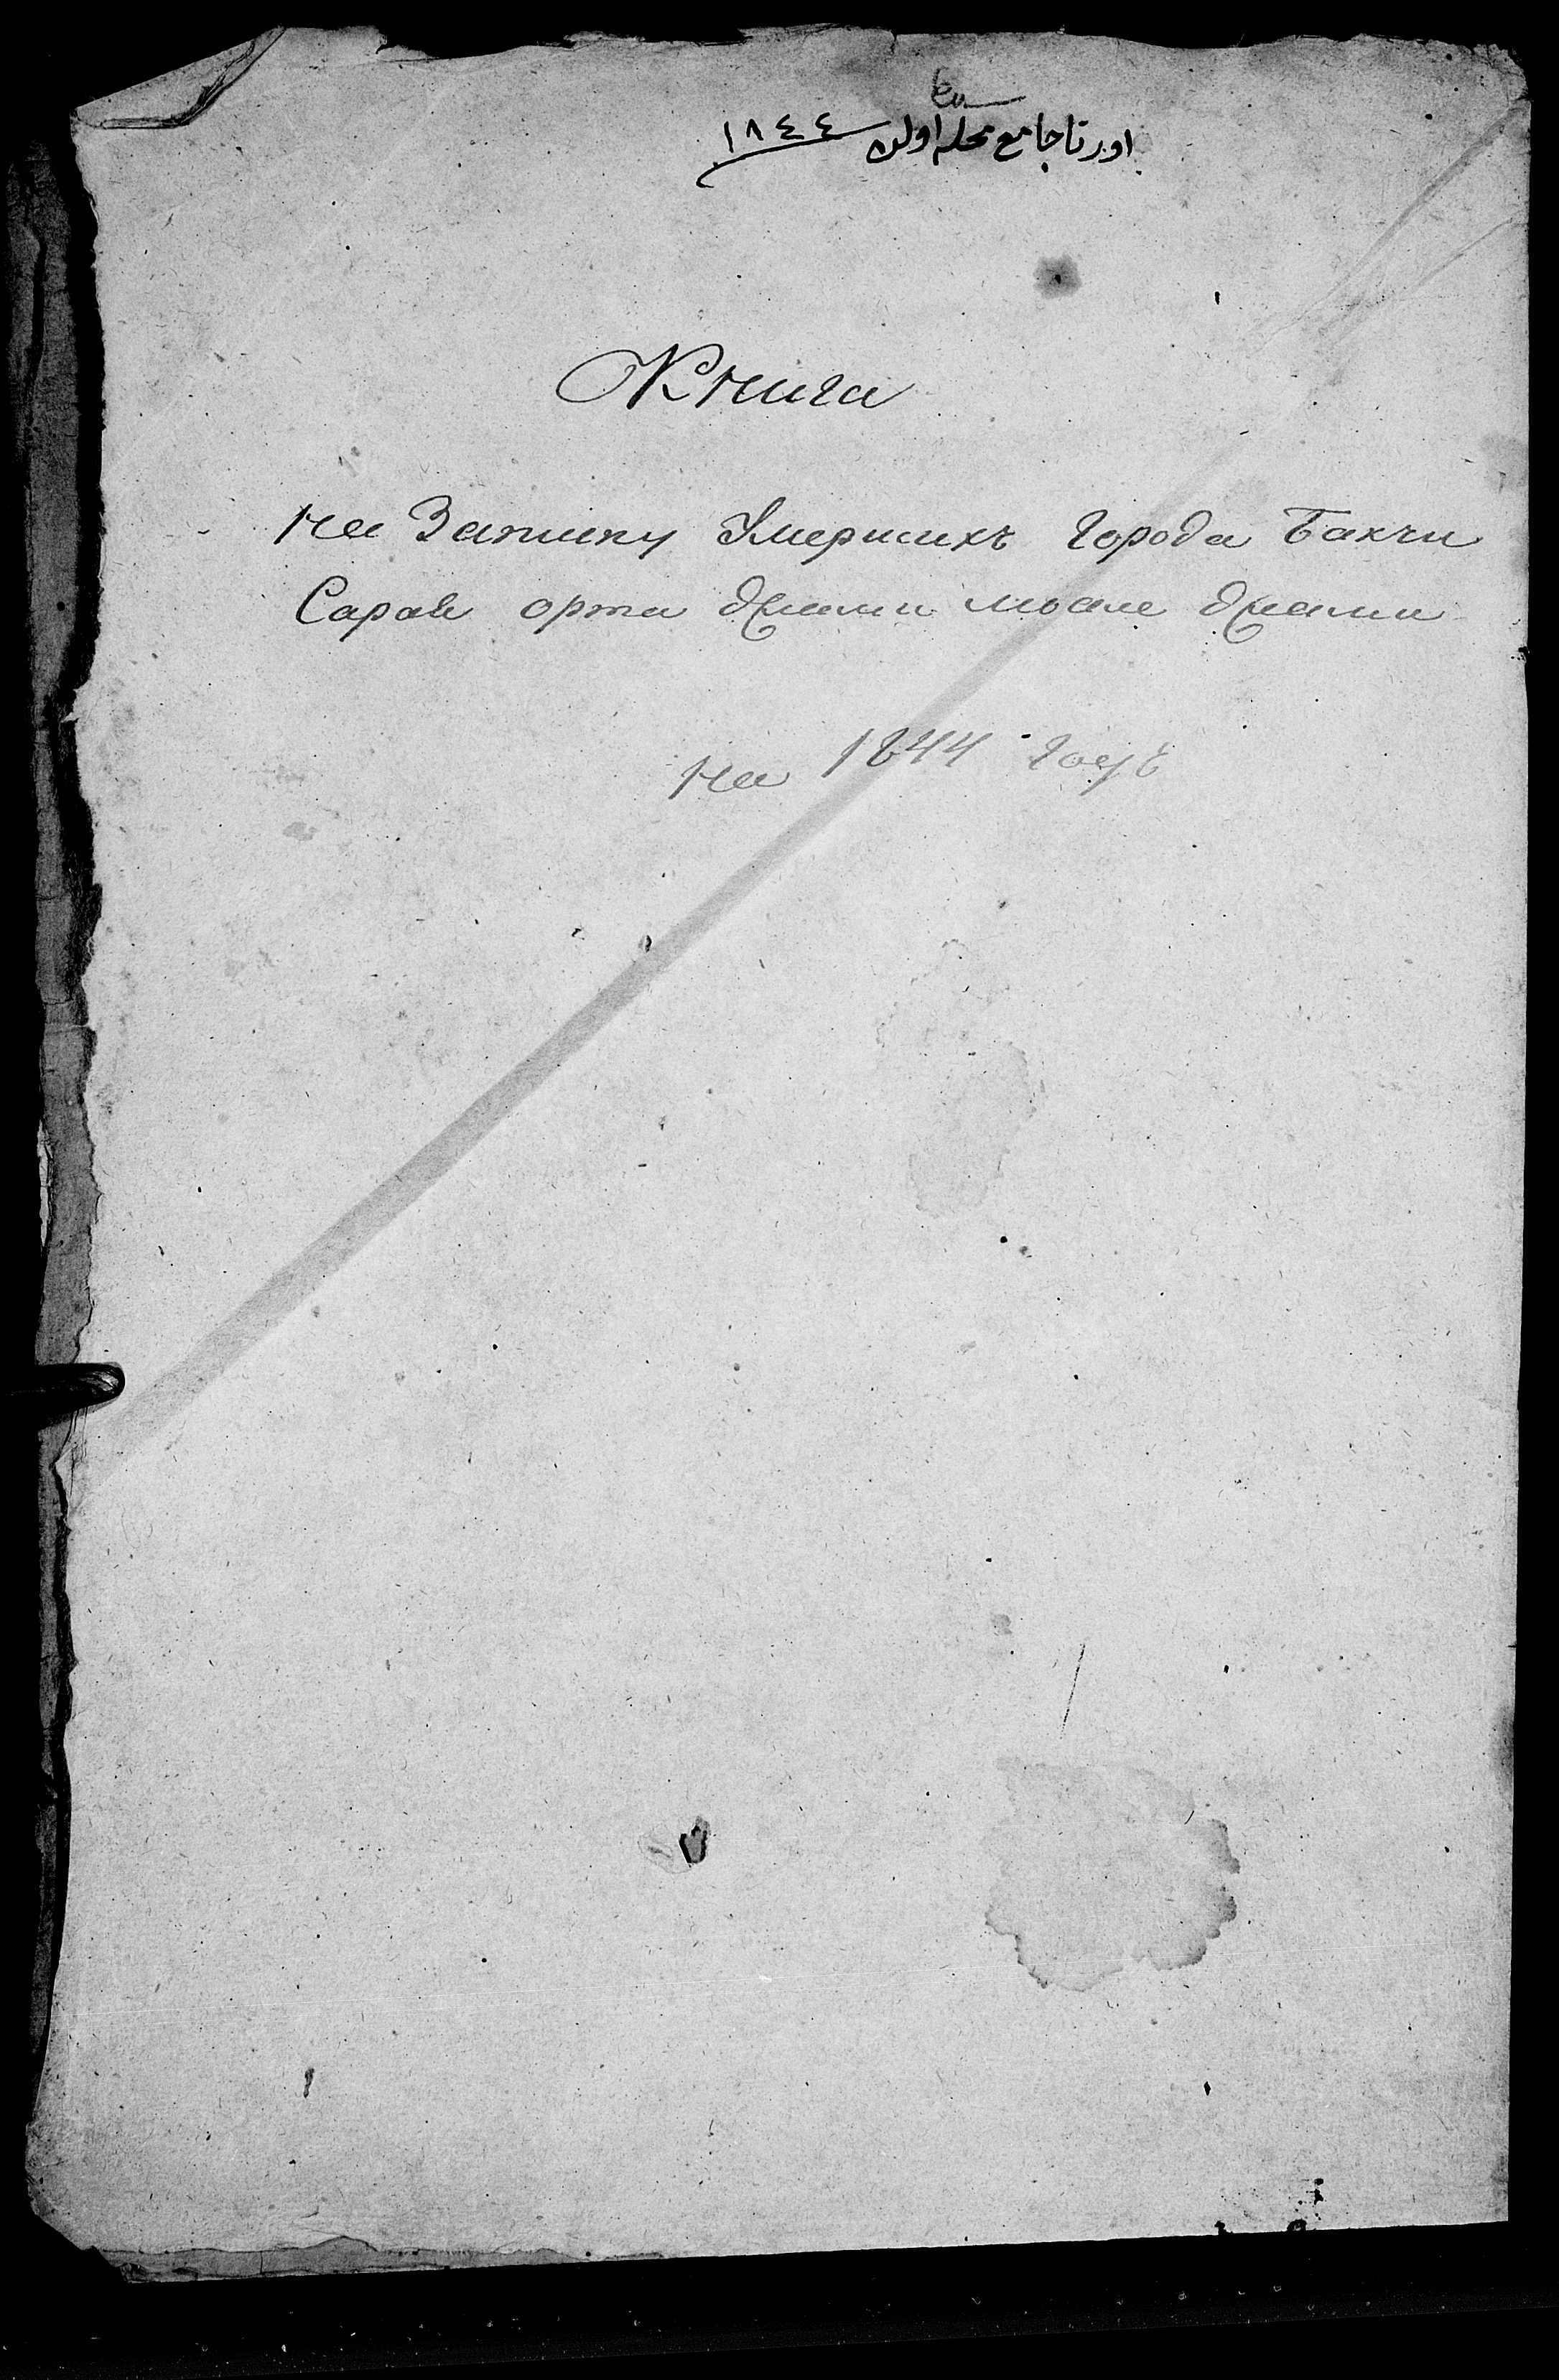 اورتا جامع محله اولن ١٨٤٤
Книга
на Записку Умершихъ Города Бакчи
Сарай орта джами маале джами
на 1844 годъ